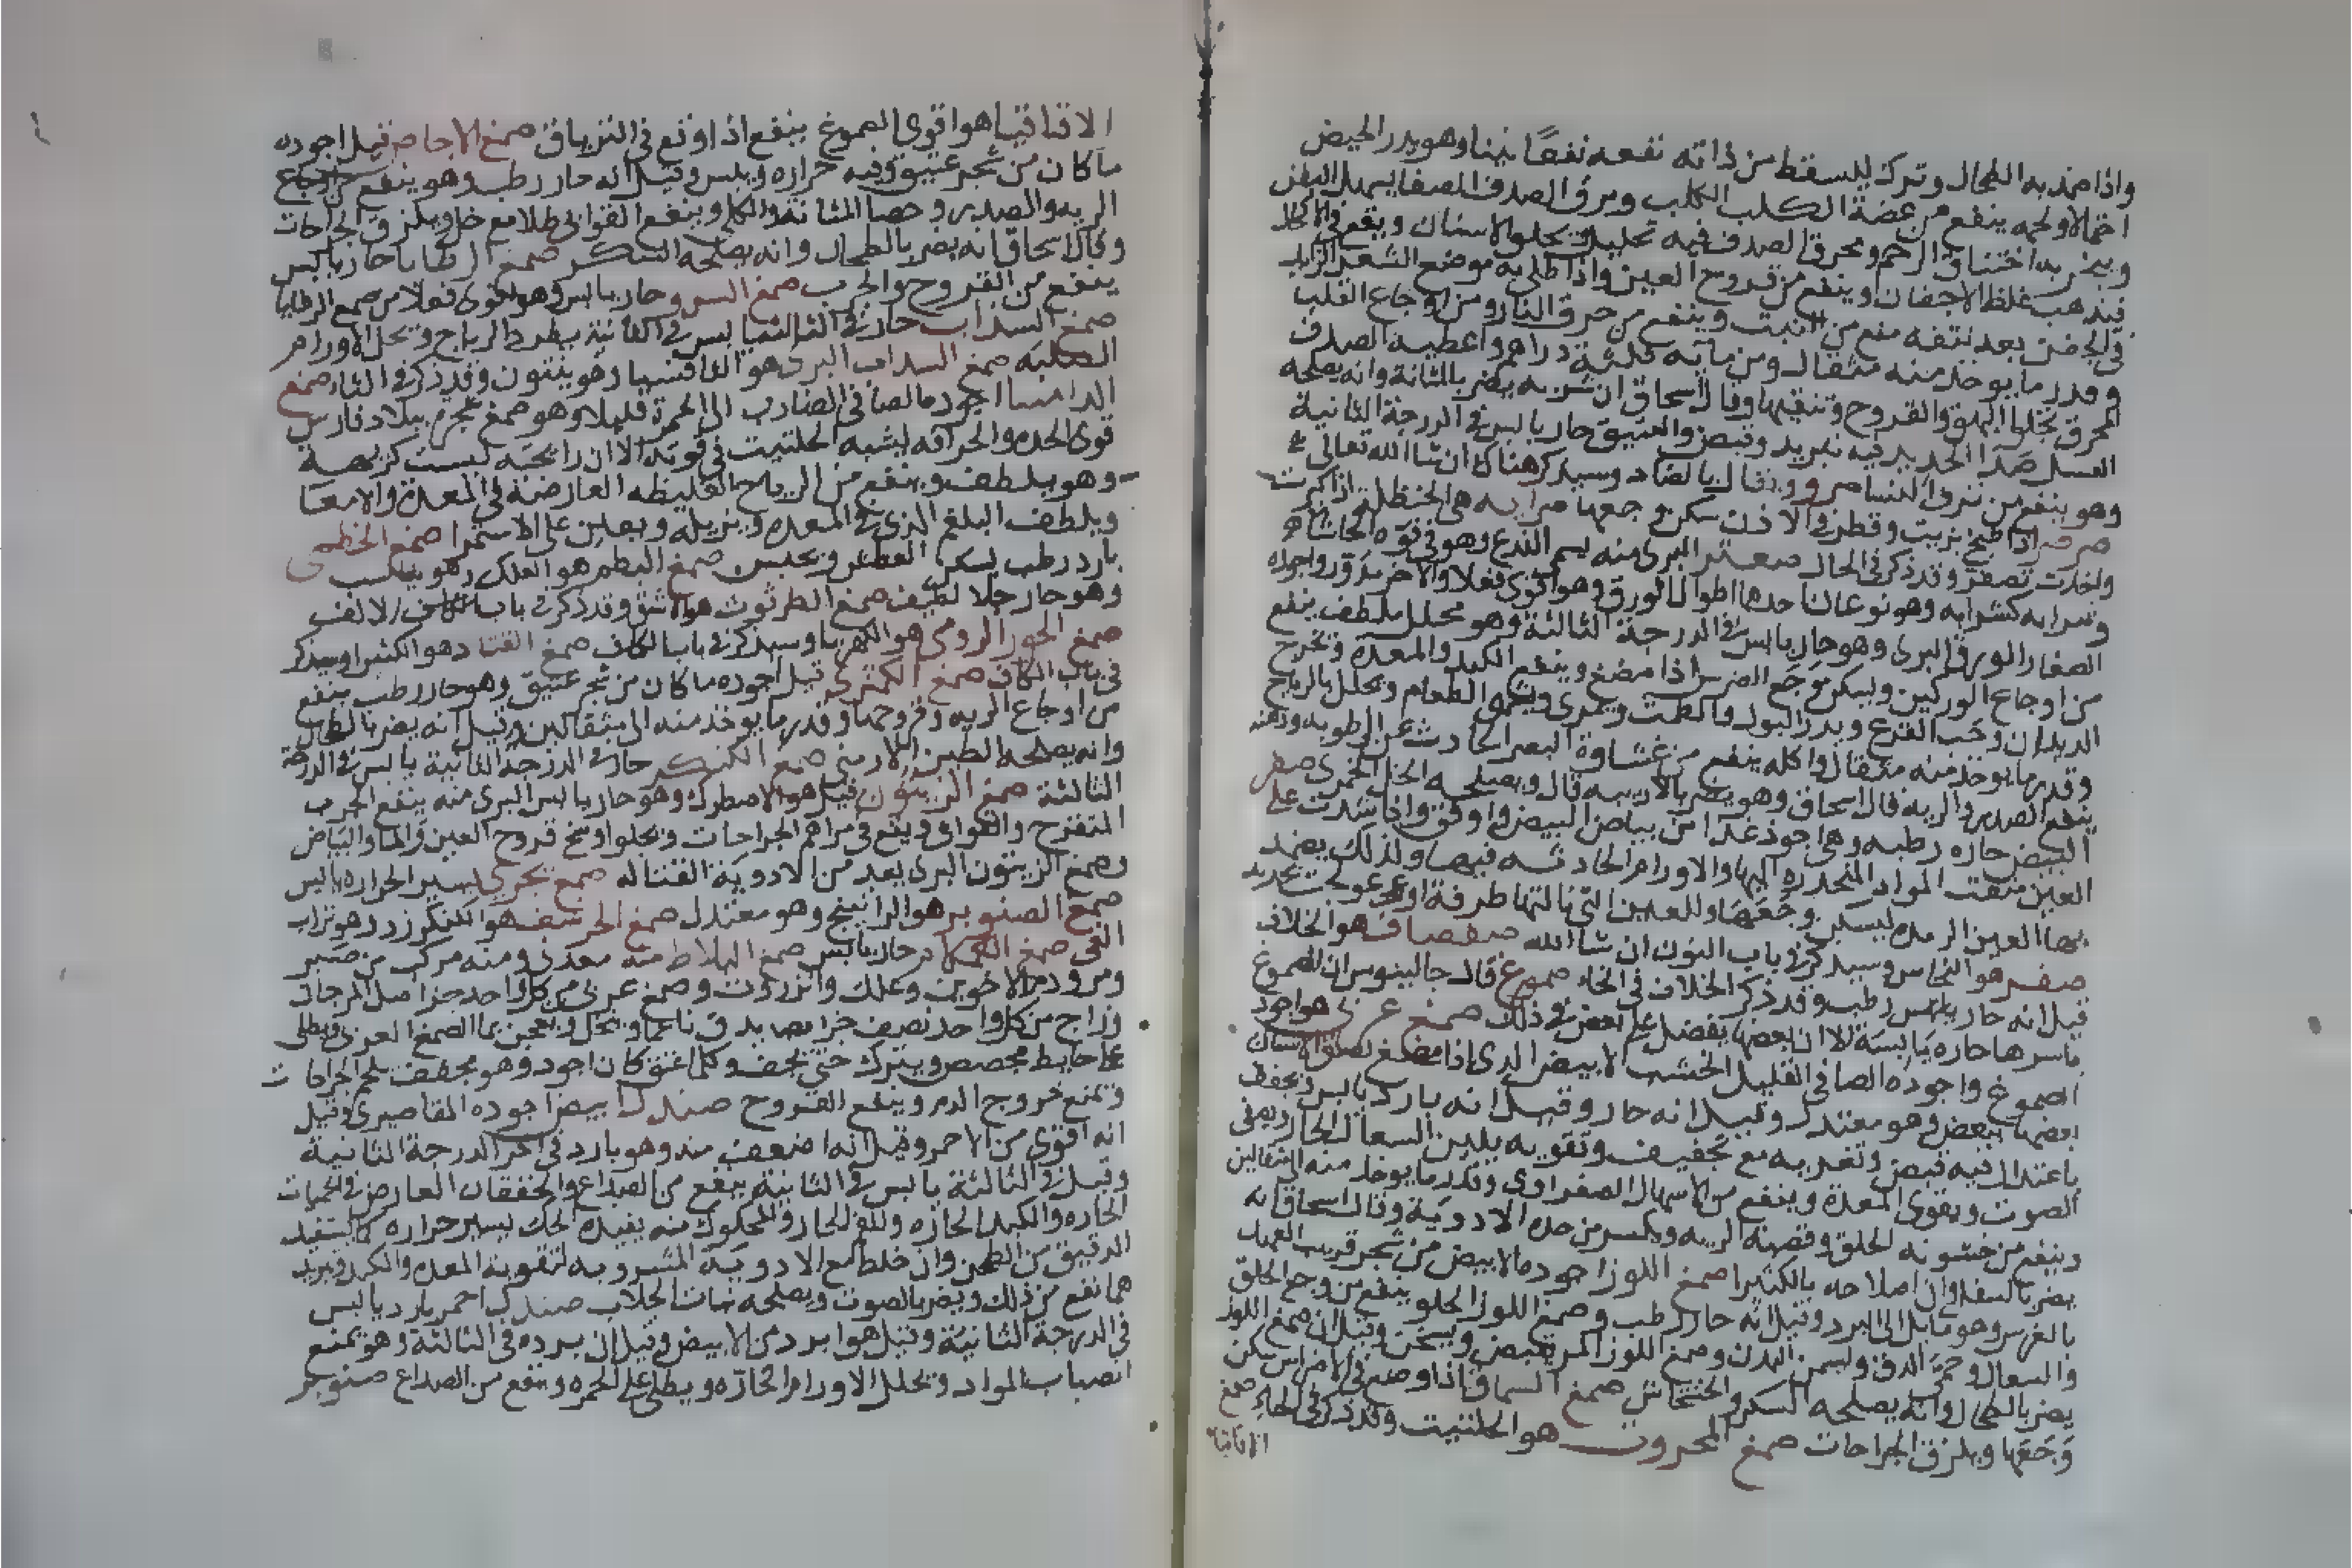 واذا ضمد به الطحال وترك ليسقط من ذاته نفعه نفعًا بينا وهو يدر الحيض
احتمالا ولحمه ينفع من عضة الكلب الكلب ومرق الصدف الصغار يسهل البطن
ويبخر به اختناق الرحم ومحرق الصدف فيه تحليل يجلو الاسنان ويقع في الاكحال
فيذهب غلظ الاجفان وينفع من قروح العين واذا طلي به موضع الشعر الزايد
في الجفن بعد نتفه منع من النبت وينفع من حرق النار ومن اوجاع القلب
وقدر ما يوخذ منه مثقال ومن مايه ثلثة دراهم واعطيه الصدف
المحرق بخلط البهق والقروح وتنقيها وقال اسحاق ان شربه يضر بالمثانة وانه يصلحه
العسل صدا الحديد فيه تبريد وقبض والعتيق حار يابس في الدرجة الثانية
وهو ينفع من نزف النسا صرو ويقال بالضاد وسيذكر هناك ان شا الله تعالى
صرصر اذا طبخ بزيت وقطر في الاذن سكن وجعها صرايه هي الحنظلة اذا كبرت
واخذت تصفر وقد ذكر في الحا صعتر البرى منه يسمى الندغ وهو في قوة الحاشا
وشرابه كشرابه وهو نوعان احدهما اطوال الورق وهو اقوى فعلا والاخر مدور واجوده
الصغار الورق البرى وهو حار يابس في الدرجة الثالثة وهو محلل ملطف ينفع
من اوجاع الوركين ويسكن وجع الضرس اذا مضغ وينفع الكبد والمعدة ويخرج
الديدان وحب القرع ويدر البول والطمث ويمرى ويشهى الطعام ويحلل الرياح
وقدر ما يوخذ منه مثقال واكله ينفع من غشاوة البصر الحادث عن الرطوبه ودهنه
ينفع الصدر والريه قال اسحاق وهو يضر بالاربيه قال ويصلحه الخل الخمرى صفر
البيض حاره رطبه وهي اجود غدا من بياض البيض واوفق واذا شدت على
العين منعت المواد المنحدره اليها والاورام الحادثه فيها ولذلك يضمد
بها العين الرمده ليسكن وجعها وللعين التي نالتها طرفة او عولجت بحديد
صفر هو النحاس وسيذكر في باب النون ان شا الله صفصاف هو الخلاف
قيل انه حار يابس رطب وقد ذكر الخلاف في الخاء صموغ قال جالينوس ان الصموغ
باسرها حاره يابسة الا ان بعضها يفضل على بعض في ذلك صمغ عربي هو اجود
الصموغ واجوده الصافي القليل الخشب الابيض الذى اذا مضغ لصق الاسنان
بعضها ببعض وهو معتدل وقيل انه حار وقيل انه بارد يابس ويجفف
باعتدال فيه قبض وتغريه مع تجفيف وتقويه يلين السعال الحار ويصفى
الصوت ويقوى المعدة وينفع من الاسهال الصفراوى وقدر ما يوخذ منه الى مثقالين
وينفع من خشونه الحلق وقصبة الريه ويكسر من حده الادوية وقال اسحاق انه
يضر بالسفل وان اصلاحه بالكثيرا صمغ اللوز اجوده الابيض من شجر قريب العهد
بالغرس وهو مايل الى البرد وقيل انه حار رطب وصمغ اللوز الحلو ينفع من وجع الحلق
والسعال وحمى الدق ويسمن البدن وصمغ اللوز المر يقبض ويسخن وقيل ان صمغ اللوز
يضر بالطحال وانه يصلحه السكر والخشخاش صمغ السماق اذا وضع في الاضراس سكن
وجعها ويلزق الجراحات صمغ المحروث هو الحلتيت وقد ذكر في الحاء صمغ
الاقاقيا
الاقاقيا هو اقوى الصموغ ينفع اذا وقع في الترياق صمغ الاجاص قيل اجوده
ما كان من شجر عتيق وفيه حراره ويبس وقيل انه حار رطب وهو ينفع من اوجاع
الريه والصدر وحصا المثانة والكلى وينفع القوابي طلا مع خل ويلزق الجراحات
وقال اسحاق انه يضر بالطحال وانه يصلحه السكر صمغ الرطايا حار يابس
ينفع من القروح والجرب صمغ السرو حار يابس وهو اقوى فعلا من صمغ الرطايا
صمغ السذاب حار في الثالثة يابس في الثانية يطرد الرياح ويحلل الاورام
الصلبه صمغ السداب البرى هو الثافسيا وهو ينتون وقد ذكر في الثا صمغ
الدامسا اجوده الصافي الضارب الى الحمرة قليلا وهو صمغ شجر ببلاد فارس
قوى الحده والحرافه يشبه الحلتيت في قوته الا ان رايحته ليست كريهة
وهو يلطف وينفع من الرياح الغليظه العارضة في المعدة والامعا
ويلطف البلغم الذى في المعده ويزيله ويعين على الاستمرا صمغ الخطمى
بارد رطب يسكن العطش ويحبس صمغ البطم هو العلك وهو يناسب
وهو حار جلا لطيف صمغ الطرثوث هو الاشق وقد ذكر في باب الالف
صمغ الحور الرومى هو الكهربا وسيذكر في باب الكاف صمغ القتاد هو الكثيرا وسيذكر
في باب الكاف صمغ الكمثرى قيل اجوده ما كان من شجر عتيق وهو حار رطب ينفع
من اوجاع الريه وقروحها وقدر ما يوخذ منه الى مثقالين وقيل انه يضر بالطحال
وانه يصلحه الطين الارمني صمغ الكنكر حار في الدرجة الثانية يابس في الدرجة
الثالثة صمغ الزيتون قيل هو الاصطرك وهو حار يابس البرى منه ينفع الجرب
المتقرح والقوابي ويقع في مراهم الجراحات ويجلو اوسخ قروح العين والما والبياض
وصمغ الزيتون البرى يعد من الادوية القتاله صمغ يحرى يسير الحراره يابس
صمغ الصنوبر هو الراتينج وهو معتدل صمغ الحرشف هو الكنكرزد وهو تراب
القى صمغ الكمكام حار يابس صمغ البلاط منه معدني ومنه مركب من صبر
ومر ودم الاخوين وعلك وانزروت وصمغ عربي من كل واحد جز اصل المرجان
وزاج من كل واحد نصف جز يدق ناعما وينخل ويعجن بما الصمغ العربي ويطلى
على حايط مجصص ويترك حتى يجف وكلما عتق كان اجود وهو يجفف يلحم الجراحات
وتمنع خروج الدم وينفع القروح صندل ابيض اجوده المقاصيرى وقيل
انه اقوى من الاحمر وقيل انه اضعف منه وهو بارد في اخر الدرجة الثانية
وقيل في الثالثة يابس في الثانية ينفع من الصداع والخفقان العارض في الحميات
الحاره والكبد الحاره وللفم الحار والمحكوك منه يفيده الحك يسير حراره كما يستفيد
الدقيق من الطحن وان خلط مع الادوية المشروبه لتقوية المعده والكبد وتبريد
هما نفع من ذلك ويضر بالصوت ويصلحه نبات الجلاب صندل احمر بارد يابس
في الدرجة الثانية وقيل هو ابرد من الابيض وقيل ان برده في الثالثة وهو يمنع
انصباب المواد ويحلل الاورام الحارّه ويطلى على الحمره وينفع من الصداع صنوبر